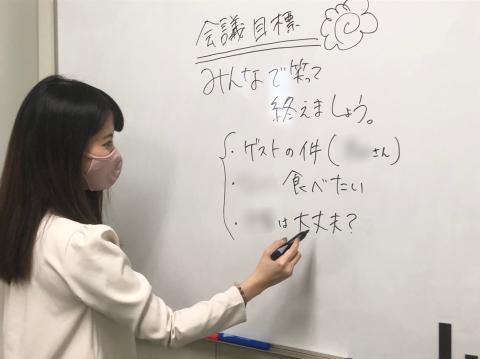 会議目標
みんなで笑って
終えましょう。
・ゲストの件( さん)
・ 食べたい
・ は大丈夫?